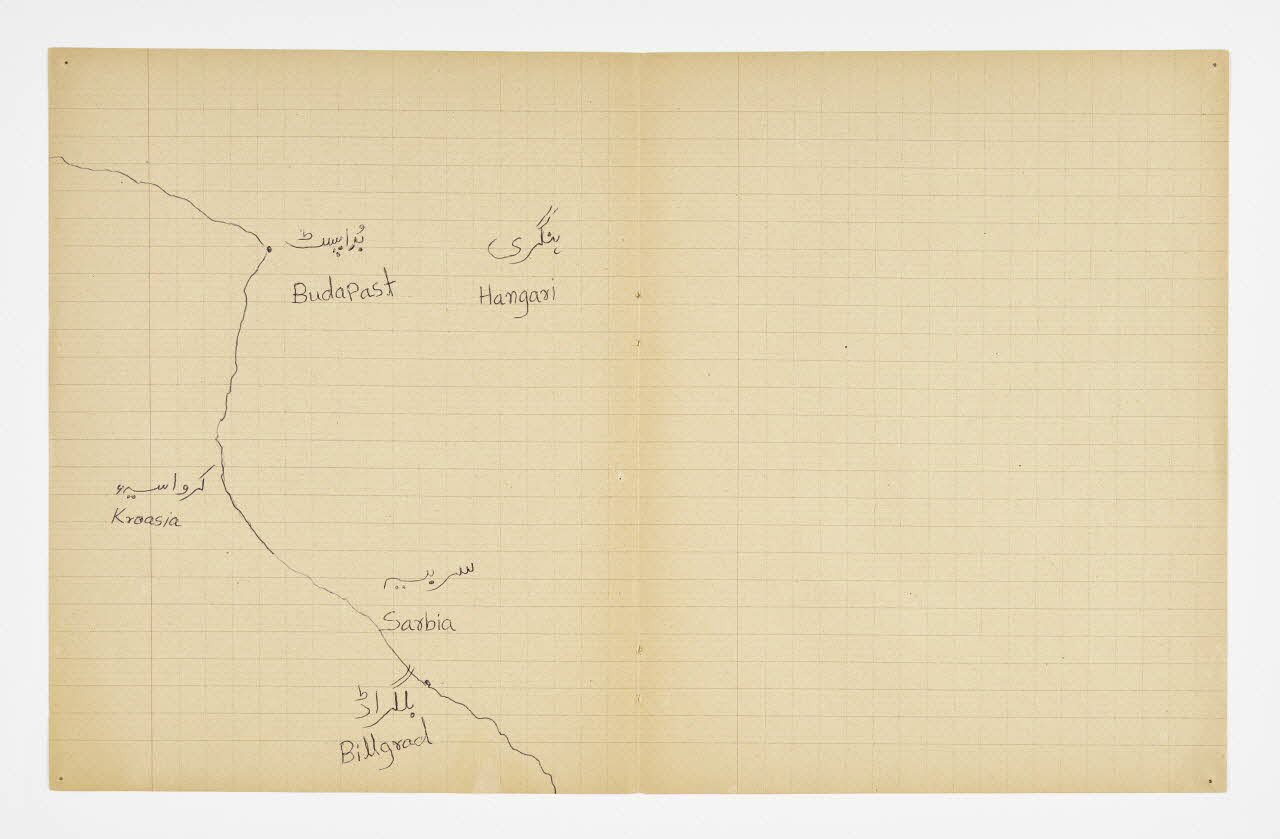 بُڈاپسٹ
Budapast
ہنگری
Hangari
کرواسیہ
Kroasia
سربیہ
Sarbia
بلگراڈ
Billgrad